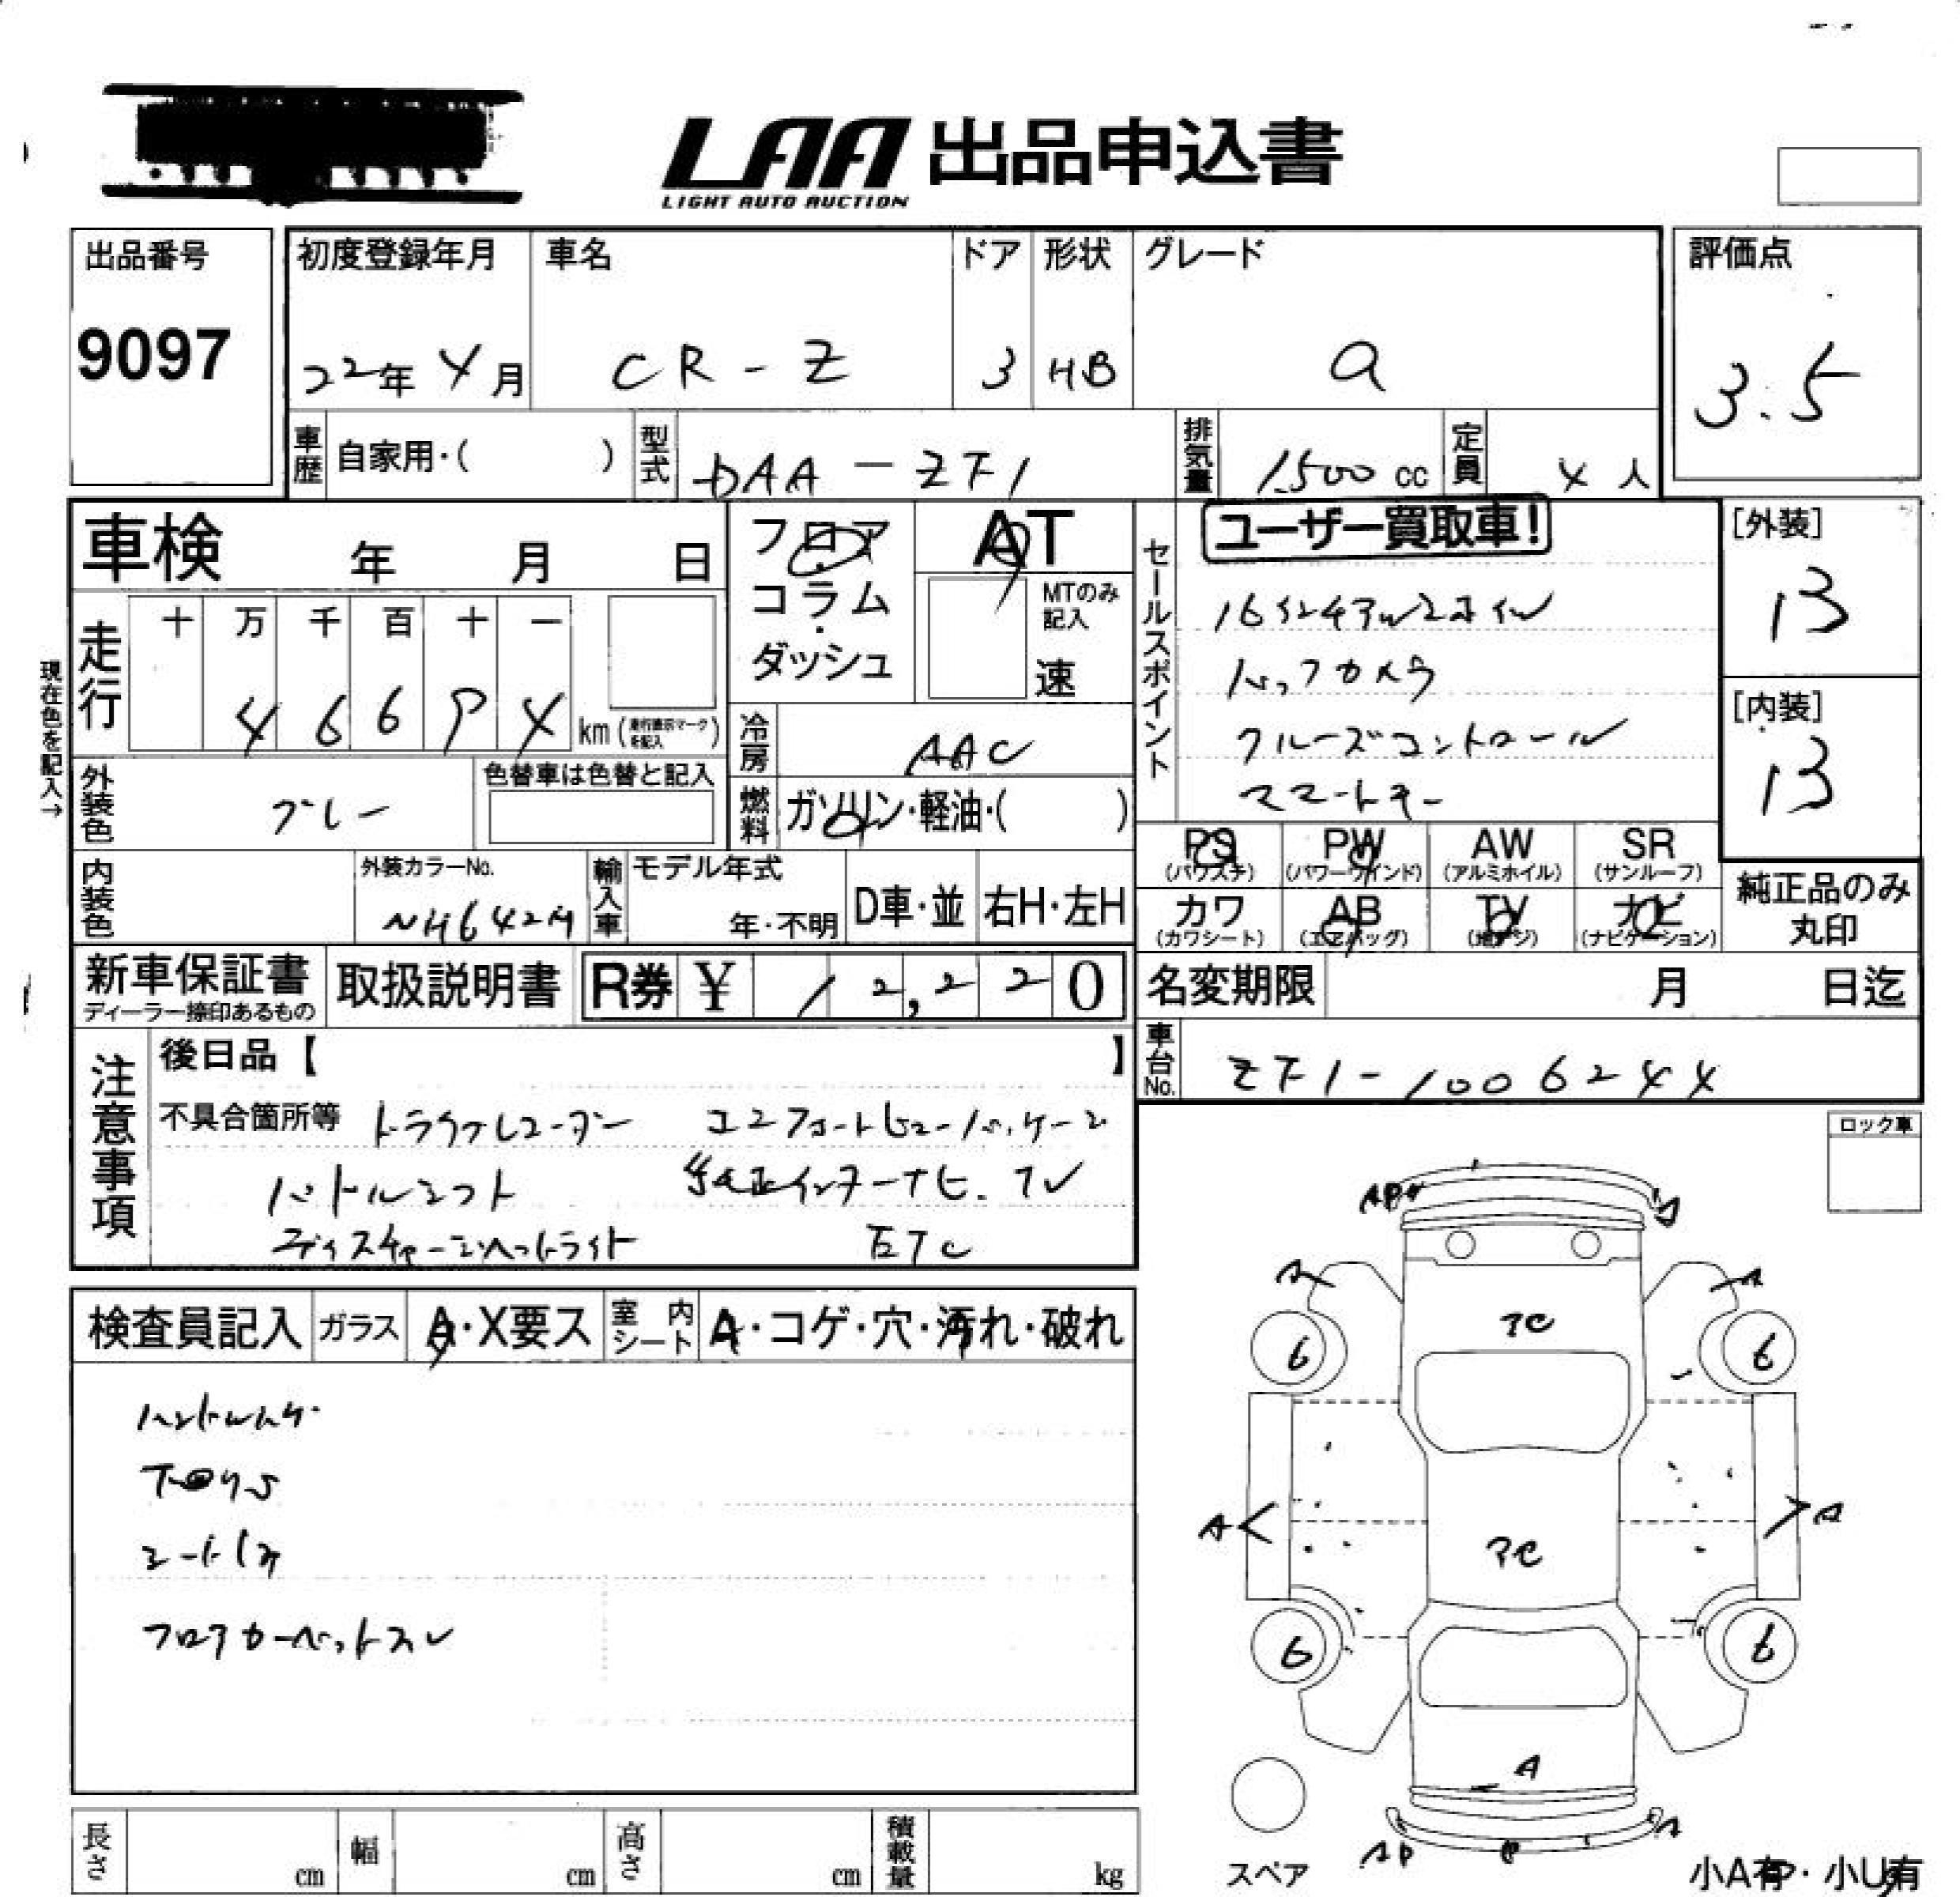 LAA 出品申込書
LIGHT AUTO AUCTION
出品番号
9097
初度登録年月
22年 4月
車名
CR-Z
ドア
3
形状
HB
グレード
α
評価点
3.5
車歴
自家用・( )
型式
DAA-ZF1
排気量
1500 cc
定員
4 人
車検 年 月 日
フロア
コラム
・
ダッシュ
AT
MTのみ
記入
速
現在色を記入→
走行
十 万 千 百 十 一
4 6 6 9 4
km
冷房
AAC
外装色
グレー
色替車は色替と記入
燃料
ガソリン・軽油・( )
内装色
外装カラーNo.
NH642M
輸入車
モデル年式
年・不明
D車・並
右H・左H
セールスポイント
ユーザー買取車!
バックカメラ
クルーズコントロール
スマートキー
[外装]
13
[内装]
13
PS
(パワステ)
PW
(パワーウインド)
AW
(アルミホイル)
SR
(サンルーフ)
カワ
(カワシート)
AB
(エアバッグ)
TV
(地デジ)
ナビ
(ナビゲーション)
純正品のみ
丸印
新車保証書
ディーラー捺印あるもの
取扱説明書
R券 ¥ 12,220
名変期限 月 日迄
車台No.
ZF1-1006244
注意事項
後日品【 】
不具合箇所等
ドライブレコーダー
パドルシフト
純正インターナビ.TV
ディスチャージヘッドライト
ETC
ロック車
検査員記入
ガラス
A・X要ス
室内シート
A・コゲ・穴・汚れ・破れ
フロアカーペットスレ
AP
A
A
A
6
6
A
A
6
6
A
スペア
AP
A
小A有・小U有
長さ cm
幅 cm
高さ cm
積載量 kg